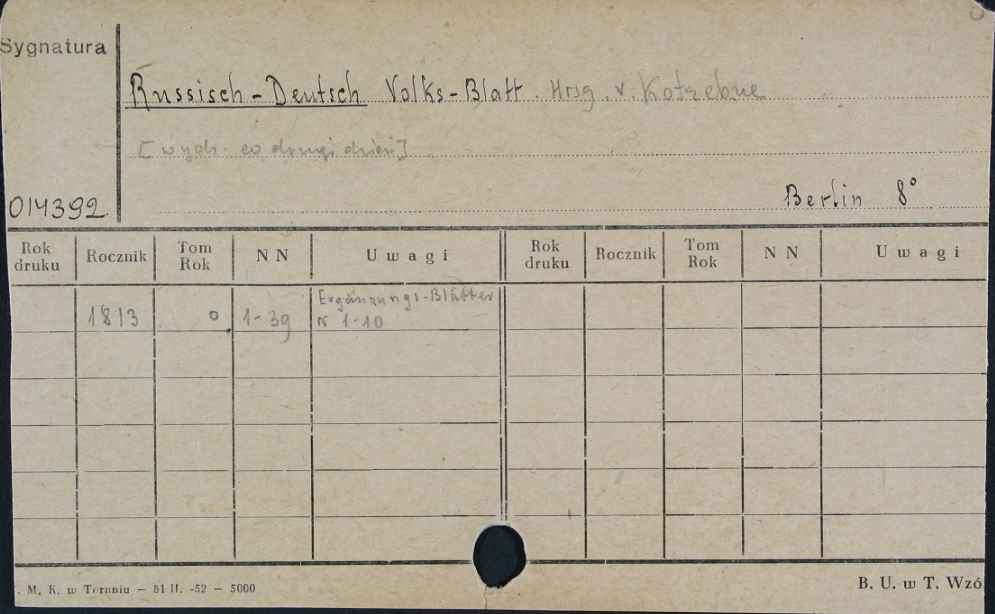 Sygnatura
Russisch-Deutsch Volks-Blatt. Hrsg. v. Kotzebue
[wych. co drugi dzień]
014392
Berlin 8°
Rok druku Rocznik Tom Rok N N Uwagi Rok druku Rocznik Tom Rok N N Uwagi
Ergänzungs-Blätter
1813 0 1-39 N 1-10
. M. K. w Toruniu — 51 II. -52 — 5000
B. U. w T. Wzó